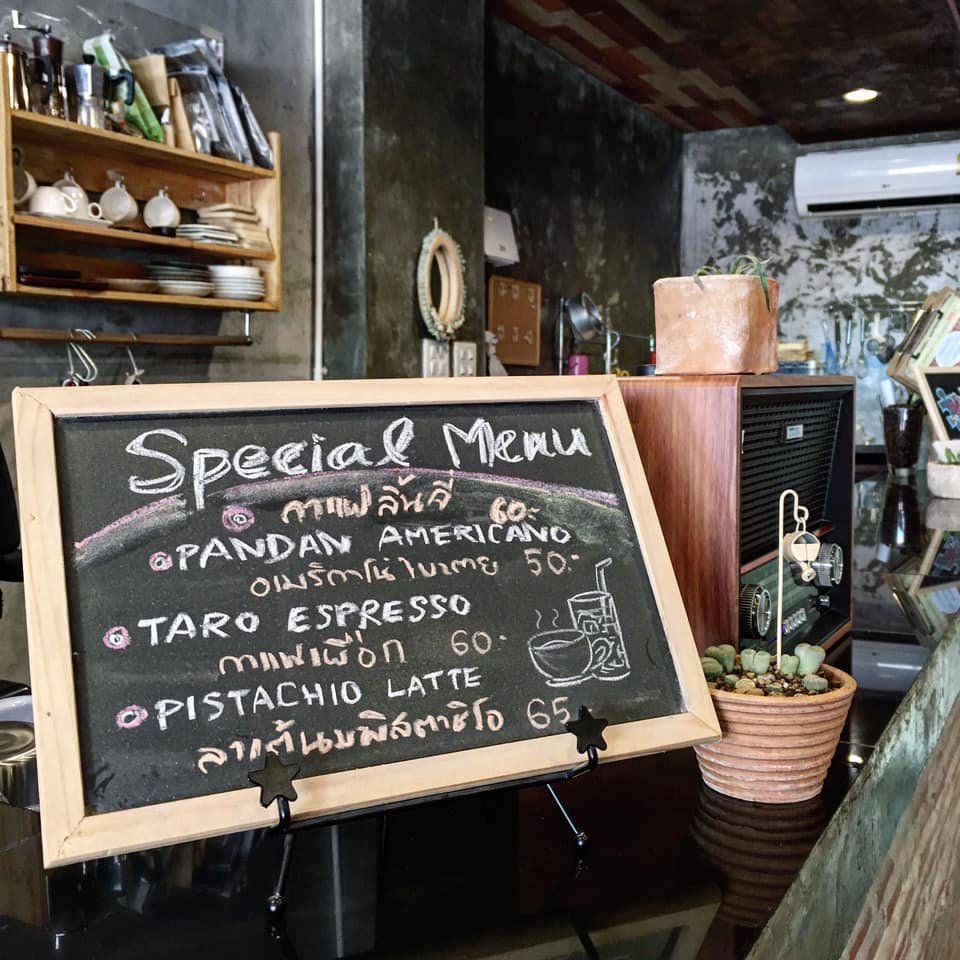 Special Menu
กาแฟลิ้นจี่ 60.-
PANDAN AMERICANO
อเมริกาโน่ใบเตย 50.-
TARO ESPRESSO
กาแฟเผือก 60.-
PISTACHIO LATTE
ลาเต้นมพิสตาชิโอ 65.-